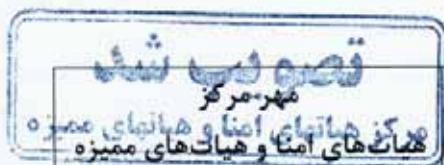 تصویب شد
مهر-مرکز
مرکز هیأتهای امنا و هیأتهای ممیزه
هیات‌های امنا و هیات‌های ممیزه